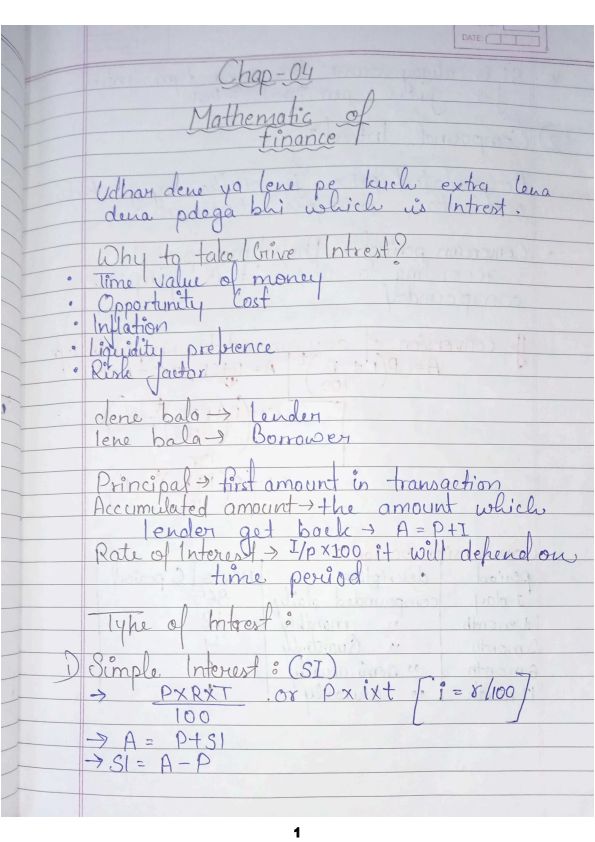 DATE:
Chap-04
Mathematic of
finance
Udhar dene ya lene pe kuch extra lena
dena pdega bhi which is Intrest.
Why to take/Give Intrest?
• Time value of money
• Opportunity Cost
• Inflation
• Liquidity prefrence
• Risk factor
dene bala → Lender
lene bala → Borrower
Principal → first amount in transaction
Accumulated amount → the amount which
lender get back → A = P+I
Rate of Interest → I/p×100 it will depend on
time period
Type of Intrest :
1) Simple Interest : (SI)
→ P×R×T or P×i×t [i = r/100]
100
→ A = P+SI
→ SI = A-P
1